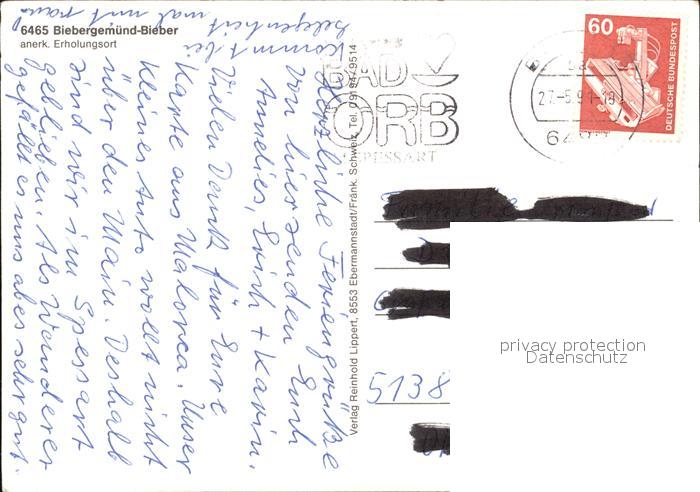 6465 Biebergemünd-Bieber
anerk. Erholungsort
Herzliche Feriengrüße
von hier senden Euch
Annelies, Erich + Karin.
Vielen Dank für Eure
Karte aus Malorca. Unser
kleines Auto wollt nicht
über den Main. Deshalb
sind wir im Spessart
geblieben. Als Wanderer
gefällt es uns aber sehr gut.
Kommt bei
Gelegenheit
mal mit raus
Verlag Reinhold Lippert, 8553 Ebermannstadt/Fränk. Schweiz, Tel. 09194/9514
BAD
ORB
SPESSART
27.-5.91-18
60
DEUTSCHE BUNDESPOST
5138
privacy protection
Datenschutz